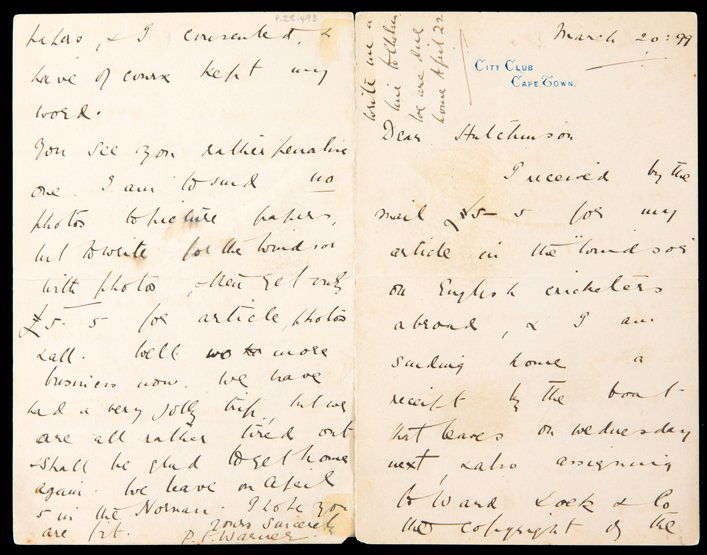 March 20: 99
CITY CLUB
CAPE TOWN.
Dear Hutchinson
I received by the
mail £5-5 for my
article in the "Windsor
on English cricketers
abroad, & I am
sending home a
receipt by the boat
that leaves on Wednesday
next, & also assigning
to Ward Lock & Co
the copyright of the
write me a
line to
we are due
home April 22
P.28.493
papers, & I consented, &
have of course kept my
word.
You see you rather penalise
one. I am to send no
photos to picture papers,
but to write for the Windsor
with photos, then get only
£5-5 for article, photos
& all. Well no more
business now. We have
had a very jolly trip, but we
are all rather tired out
& shall be glad to get home
again. We leave on April
5 in the Norman. I hope you
are fit. Yours sincerely
P. F. Warner.